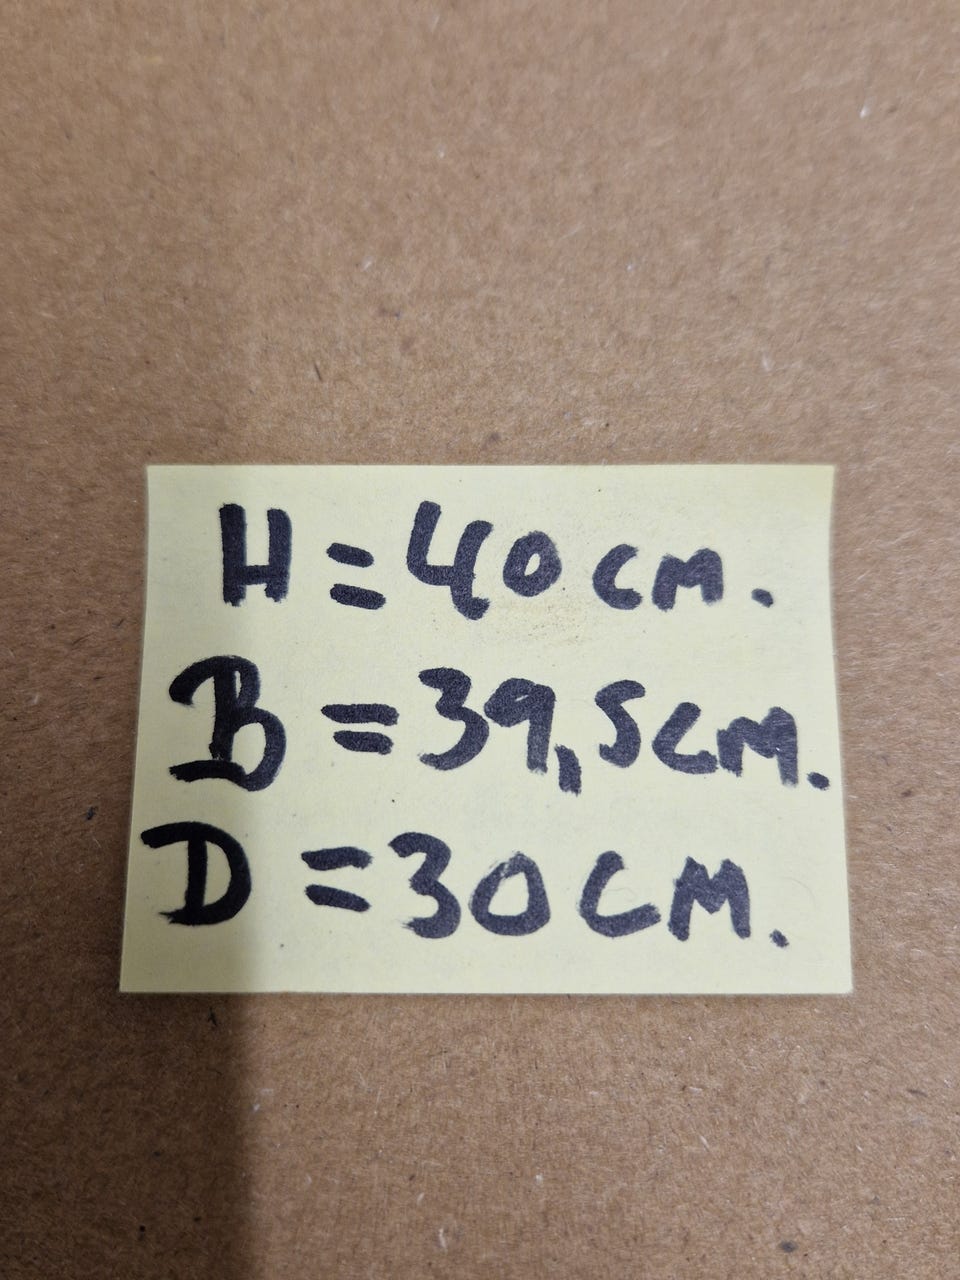 H = 40 cm.
B = 39,5 cm.
D = 30 cm.